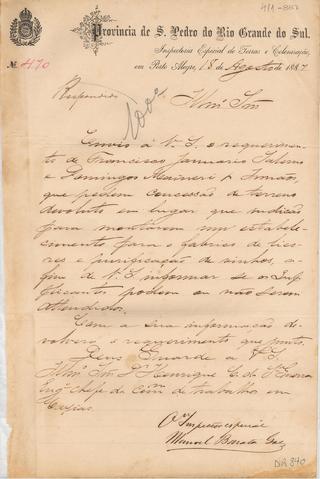 4/1-857
Provincia de S. Pedro do Rio Grande do Sul.
Inspectoria Especial de Terras e Colonisação,
em Porto Alegre, 18 de Agosto de 1887
Nº 470
Respondido
Illmº Snr
Envio á V. S. o requerimen-
to de Francisco Januario Salerno
e Domingos & Irmãos,
que pedem concessão de terreno
devoluto em lugar que indicão
para montarem um estabele-
cimento para o fabrico de lico-
res e purificação de vinhos, a
fim de V. S. informar se os sup-
plicantes podem ou não serem
attendidos.
Com a sua informação de-
volverá o requerimento que junto.
Deus Guarde a V. S.
Illmº Snr Dr Henrique
Engº Chefe da Comm de trabalhos em
Caxias.
O Inspector especial
Manoel Barata Góes
DIR 840